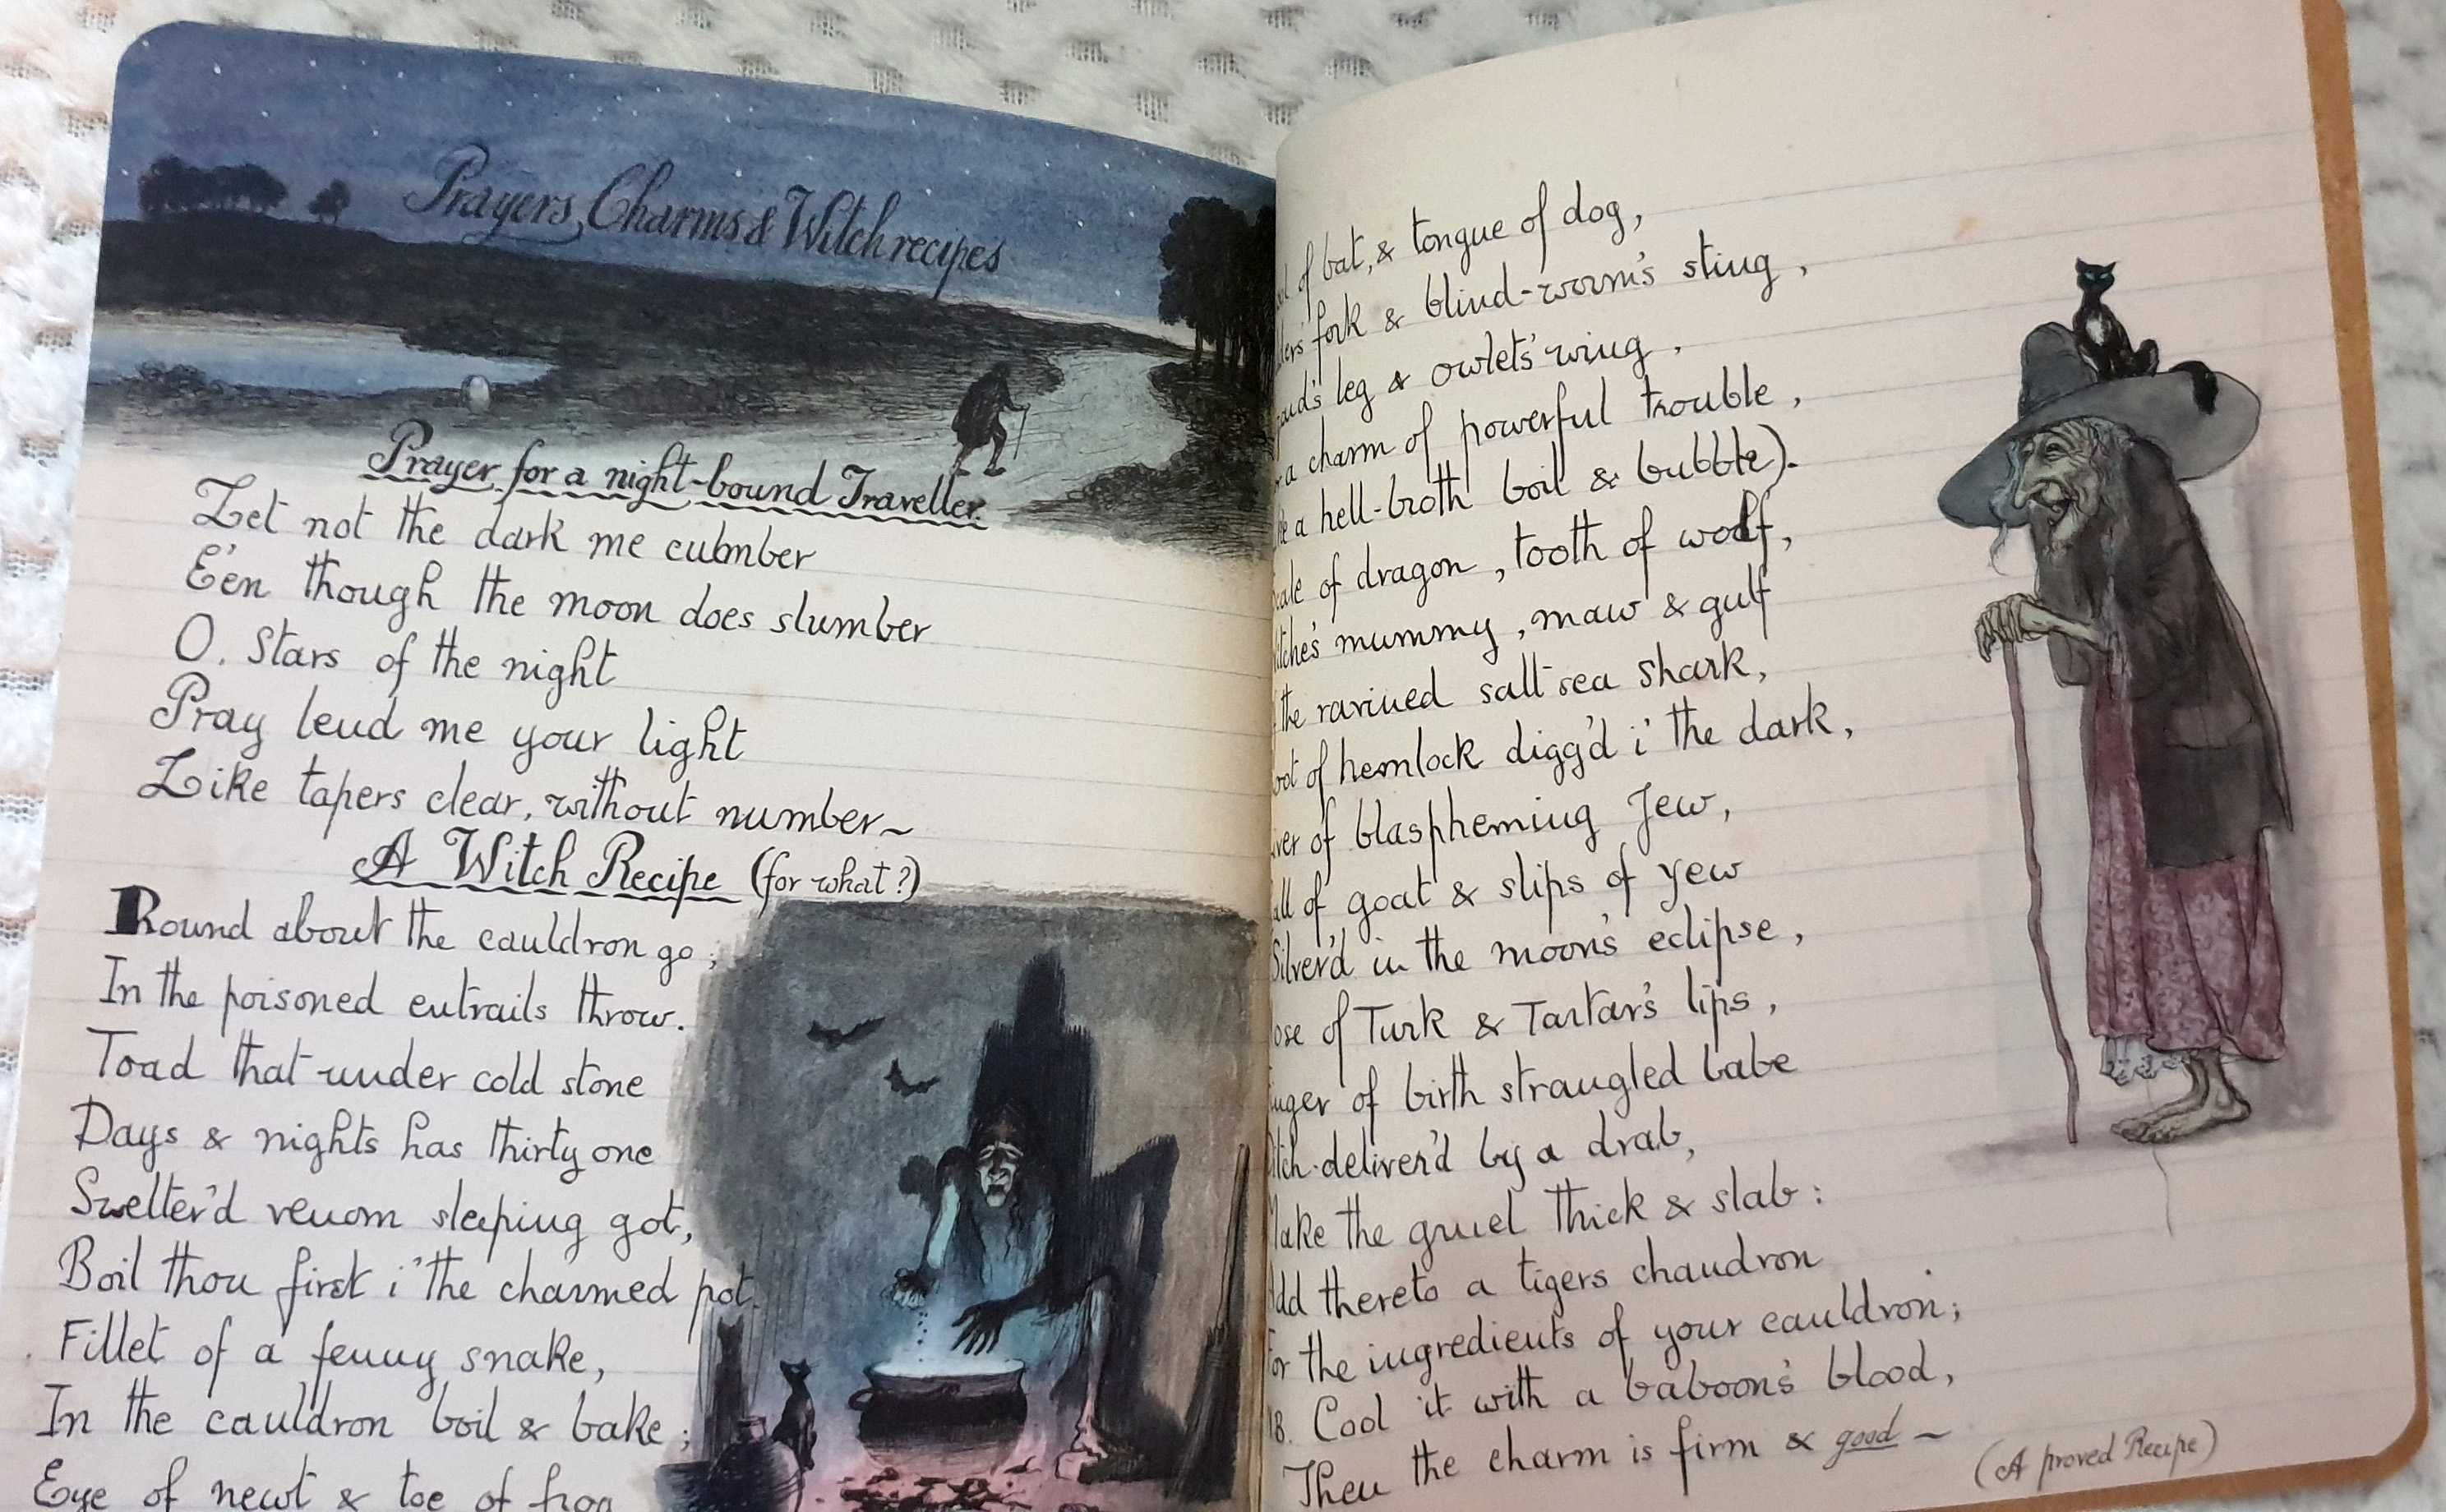 Prayers, Charms & Witch recipes
Prayer for a night-bound Traveller.
Let not the dark me cubmber
E'en though the moon does slumber
O. Stars of the night
Pray lend me your light
Like tapers clear, without number~
A Witch Recipe (for what?)
Round about the cauldron go;
In the poisoned entrails throw.
Toad that under cold stone
Days & nights has thirty one
Swelter'd venom sleeping got,
Boil thou first i' the charmed pot.
Fillet of a fenny snake,
In the cauldron boil & bake;
Eye of newt & toe of frog
of bat, & tongue of dog,
fork & blind-worm's sting,
leg & owlets' wing.
a charm of powerful trouble,
a hell-broth boil & bubble).
of dragon, tooth of wolf,
mummy, maw & gulf
the ravined salt sea shark,
of hemlock digg'd i' the dark,
of blaspheming Jew,
of goat & slips of yew
Silver'd in the moon's eclipse,
of Turk & Tartar's lips,
of birth strangled babe
deliver'd by a drab,
Make the gruel thick & slab:
Add thereto a tigers chaudron
For the ingredients of your cauldron;
Cool it with a baboon's blood,
Then the charm is firm & good ~
(A proved Recipe)